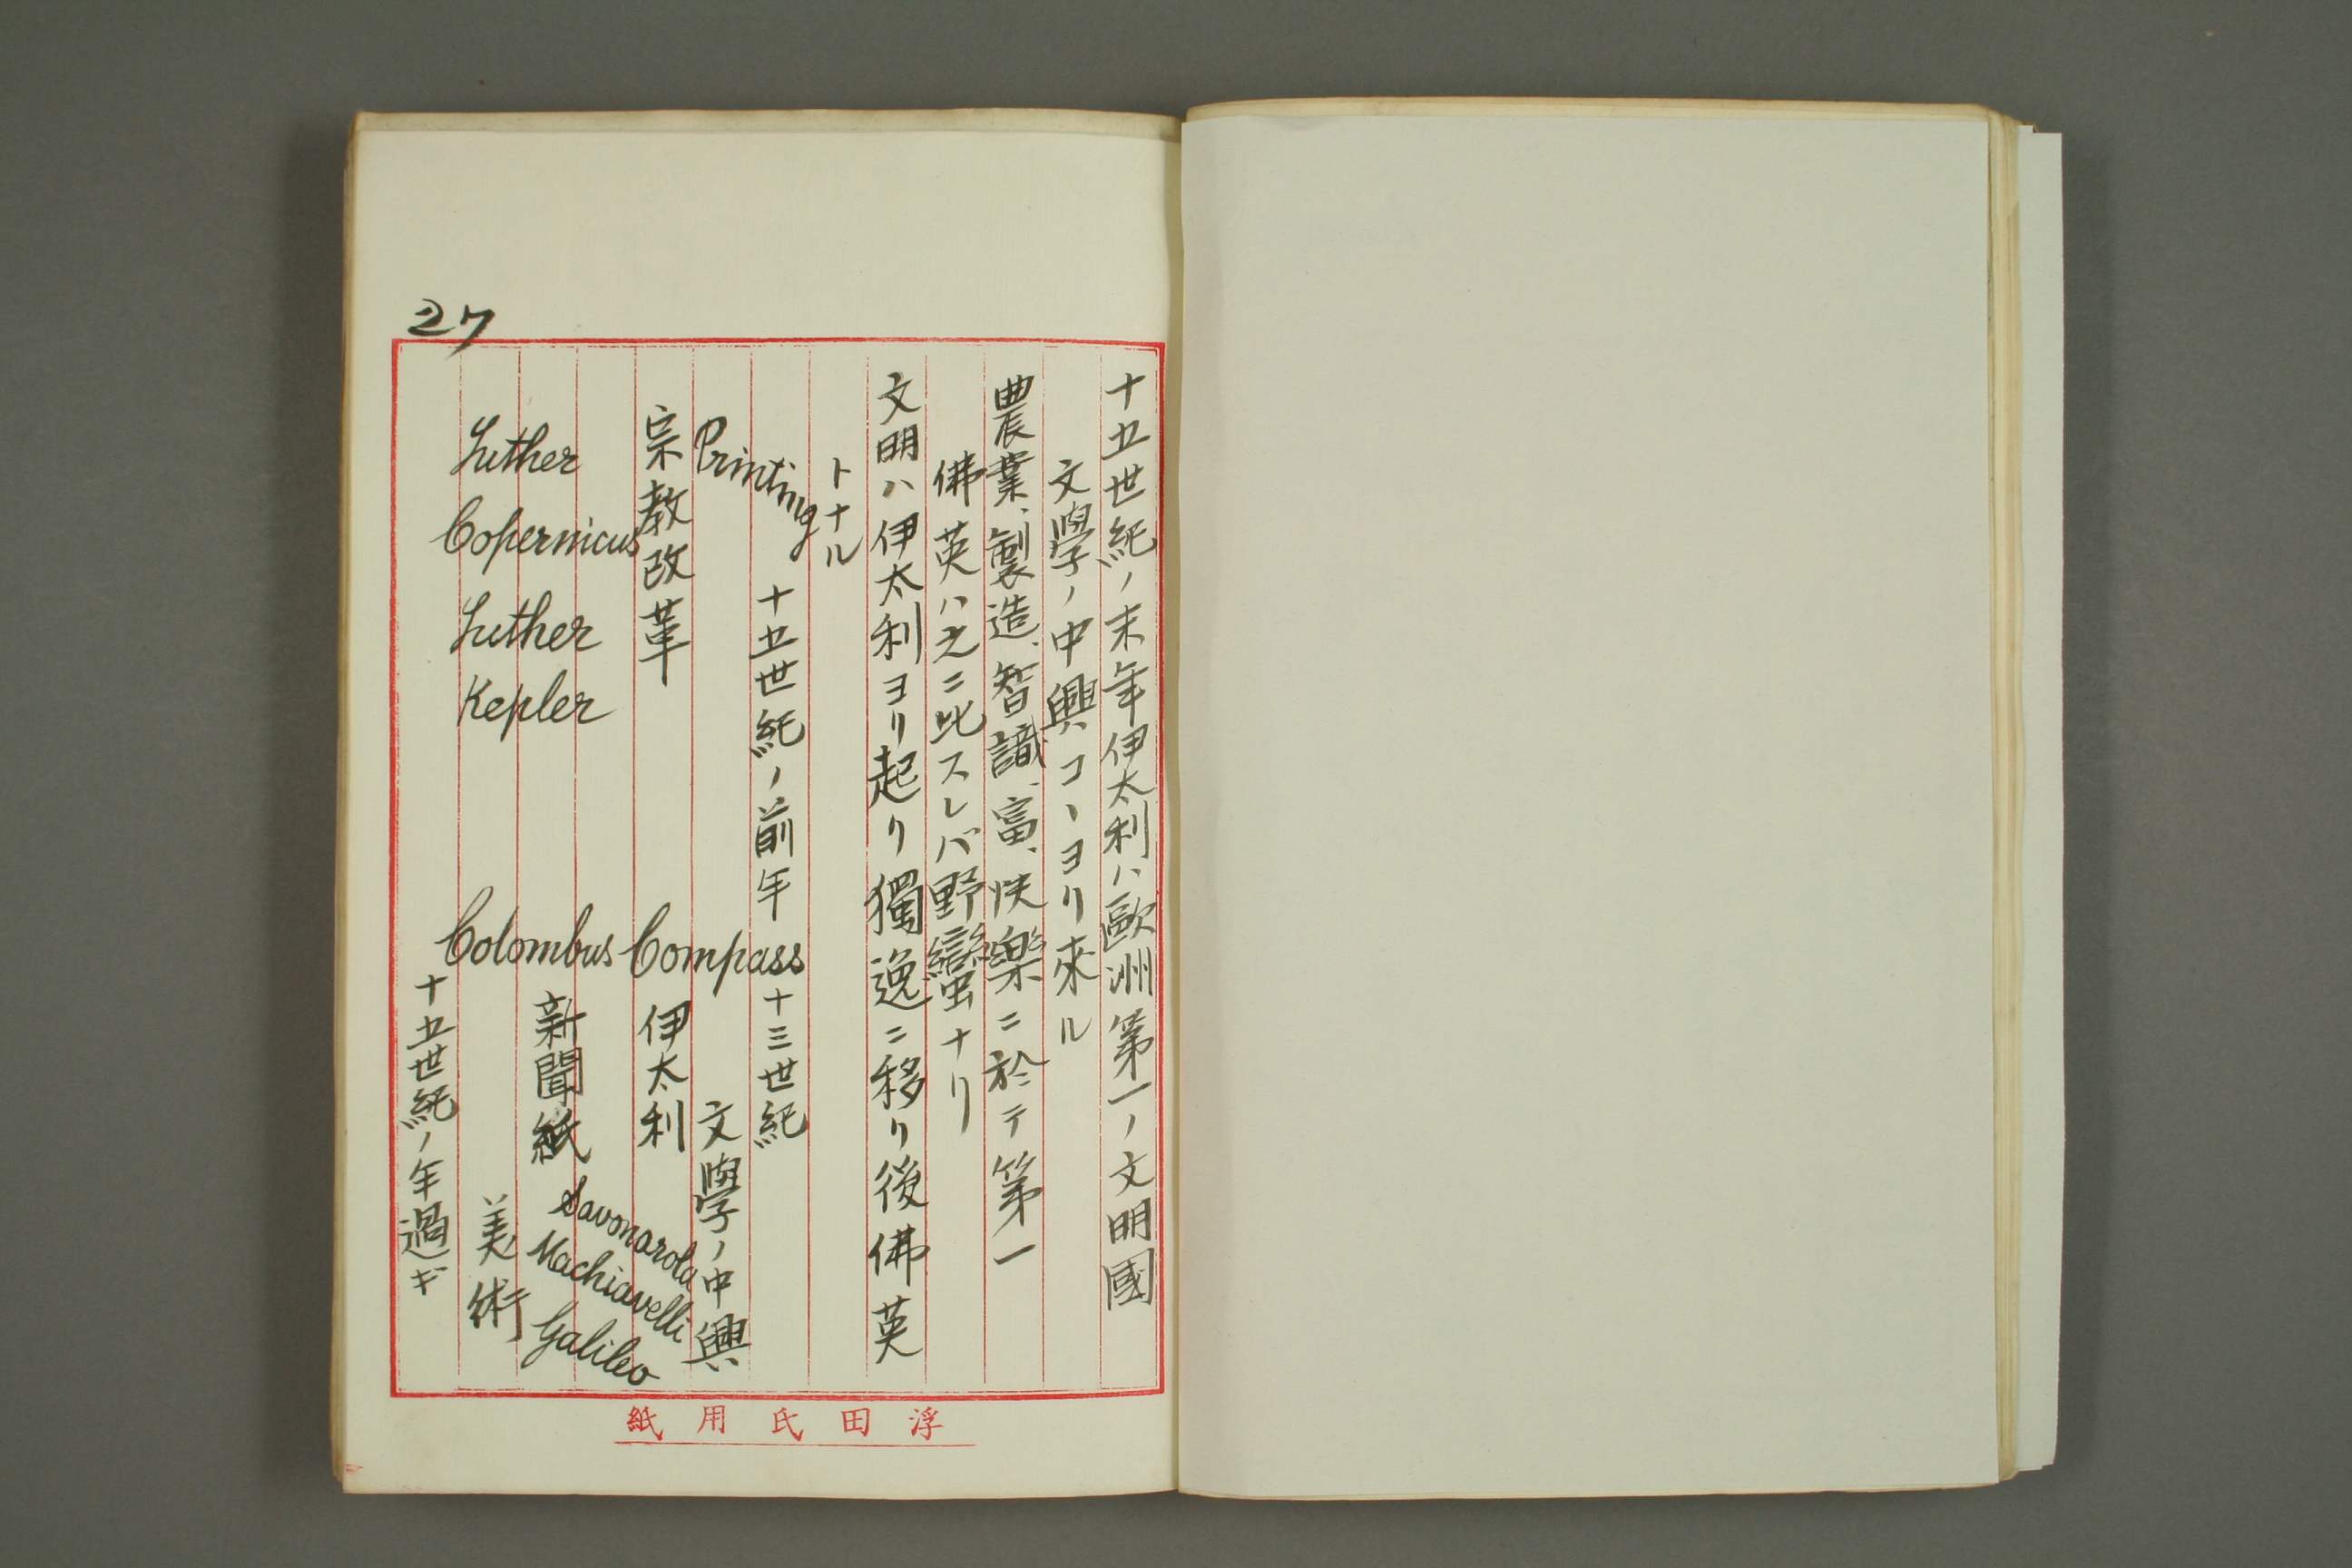 27
十五世紀ノ末年伊太利ハ歐洲第一ノ文明國
文學ノ中興コヽヨリ來ル
農業、製造、智識、富、快樂ニ於テ第一
佛英ハ之ニ比スレバ野蠻ナリ
文明ハ伊太利ヨリ起リ獨逸ニ移リ後佛英
トナル
Printing
十五世紀ノ前年
Compass
十三世紀
文學ノ中興
宗教改革
伊太利
Savonarola
Machiavelli
Galileo
新聞紙
美術
Luther
Copernicus
Luther
Kepler
Colombus
十五世紀ノ年過ギ
浮田氏用紙